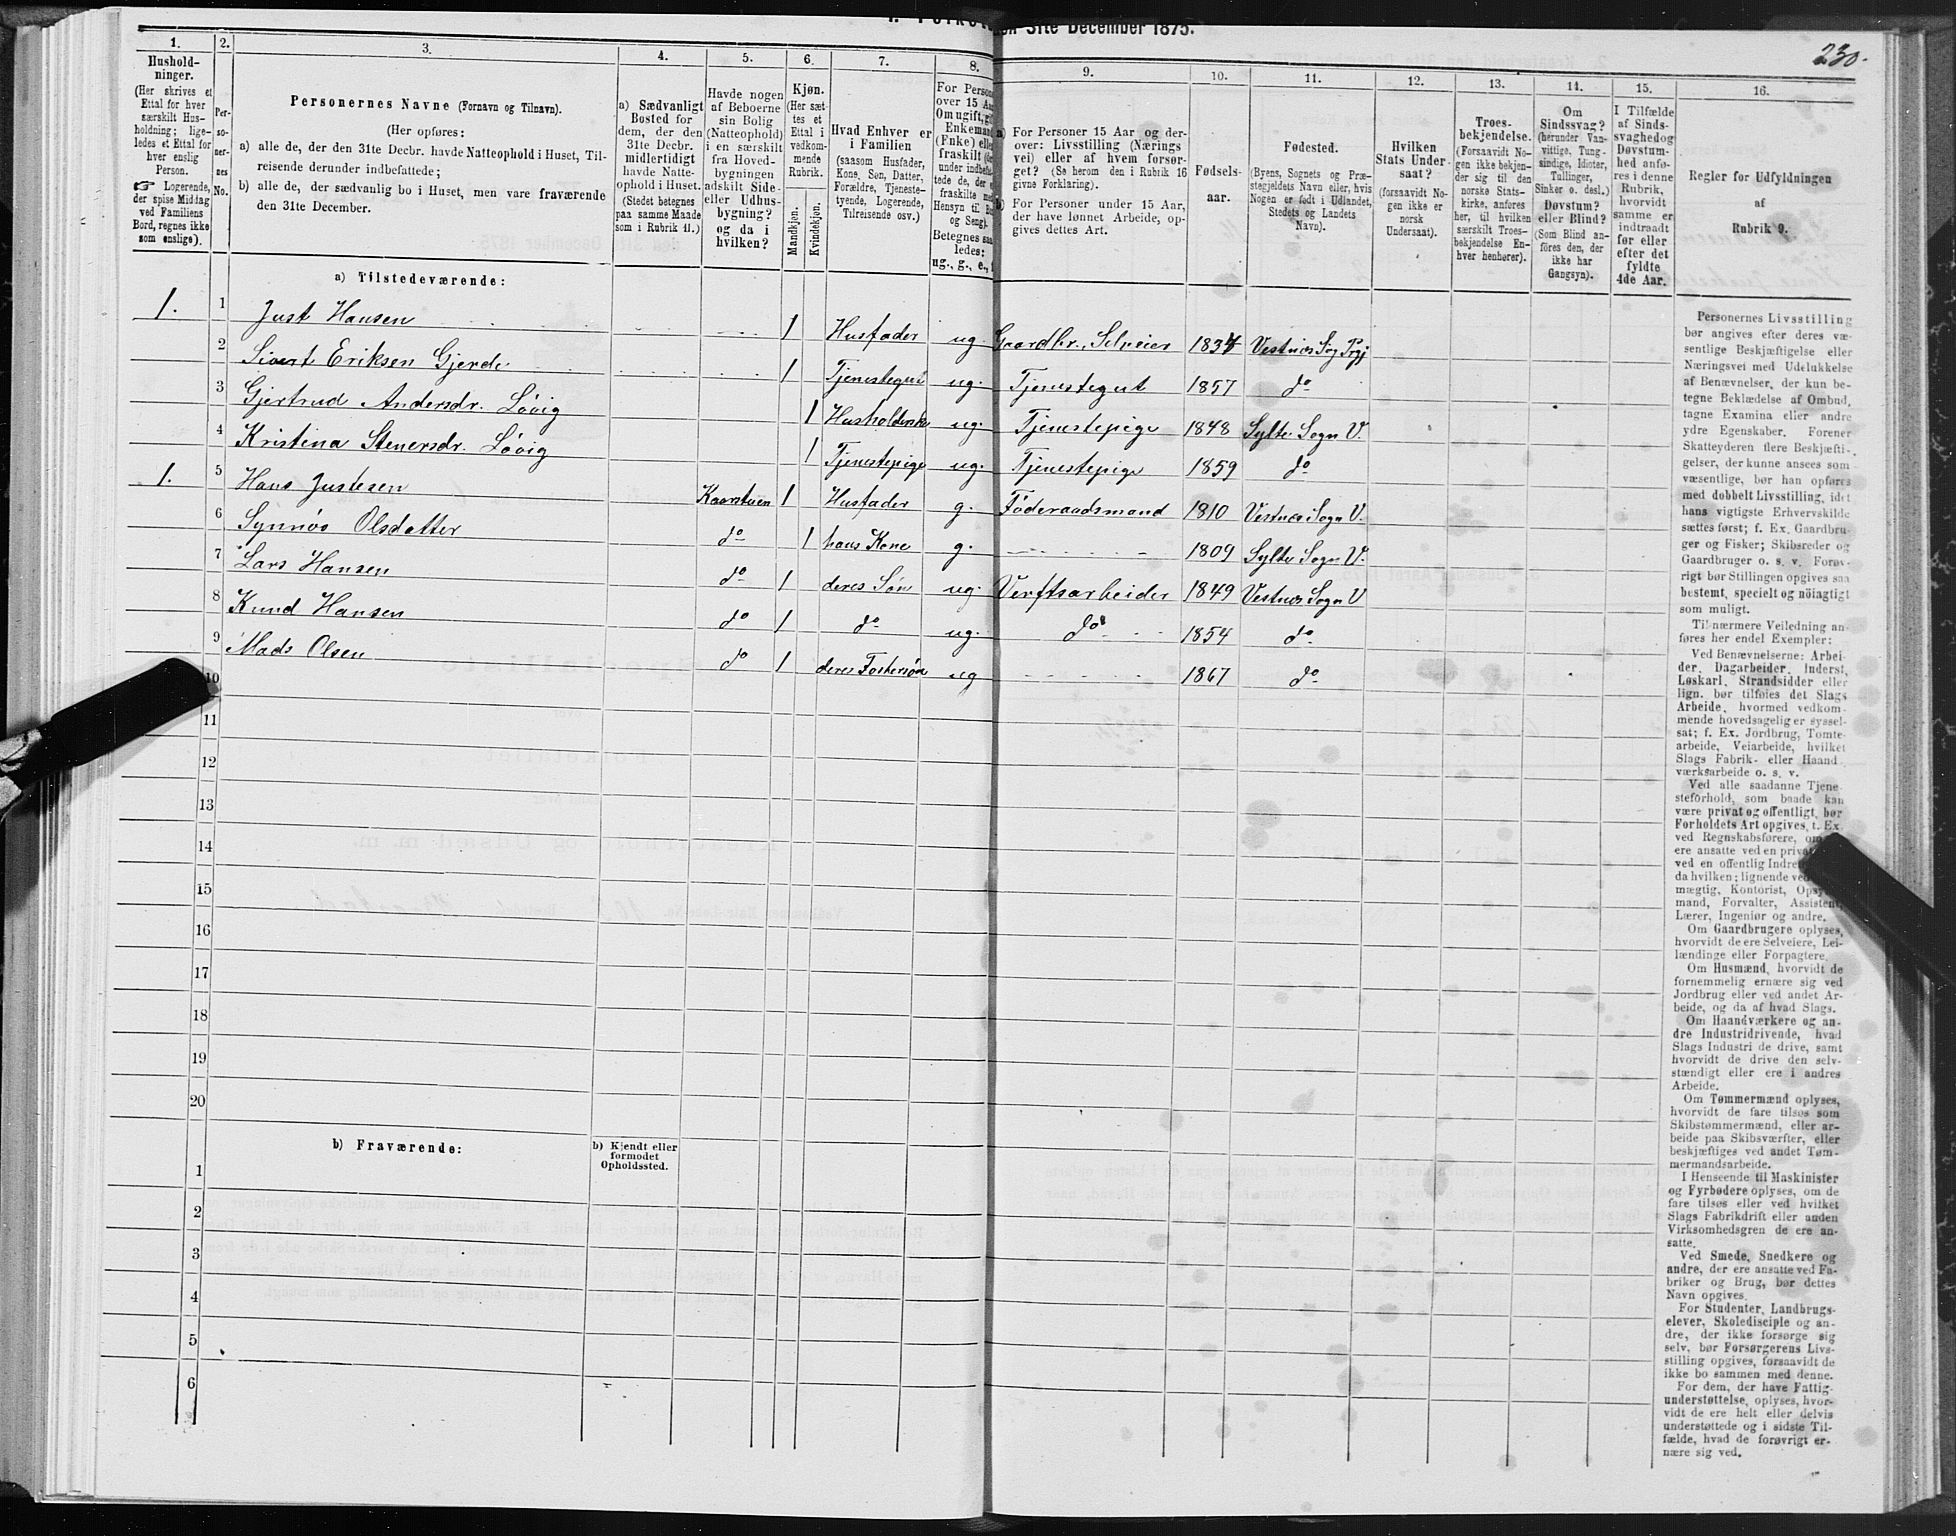 den 31te December 1875.
230.
1.
Hushold-
ninger.
(Her skrives et
Ettal for hver
særskilt Hus-
holdning; lige-
ledes et Ettal for
hver enslig
Person.
☞ Logerende,
der spise Middag
ved Familiens
Bord, regnes ikke
som enslige).
2.
Per-
so-
ner-
nes
No.
3.
Personernes Navne (Fornavn og Tilnavn).
(Her opføres:
a) alle de, der den 31te Decbr. havde Natteophold i Huset, Til-
reisende derunder indbefattede;
b) alle de, der sædvanlig bo i Huset, men vare fraværende
den 31te December.
4.
a) Sædvanligt
Bosted for
dem, der den
31te Decbr.
midlertidigt
havde Natte-
ophold i Huset.
(Stedet betegnes
paa samme Maade
som i Rubrik 11.)
5.
Havde nogen
af Beboerne
sin Bolig
(Natteophold)
i en særskilt
fra Hoved-
bygningen
adskilt Side-
eller Udhus-
bygning?
og da i
hvilken?
6.
Kjøn.
(Her sæt-
tes et
Ettal i
vedkom-
mende
Rubrik.
Mandkjøn.
Kvindekjøn.
7.
Hvad Enhver er
i Familien
(saasom Husfader,
Kone, Søn, Datter,
Forældre, Tjeneste-
tyende, Logerende,
Tilreisende osv.)
8.
For Person
over 15 Aa
Om ugift, gif
Enkemand
(Enke) elle
fraskilt
under indbefat-
tede de, der
fraskilte med
Hensyn til Bo
og Seng).
Betegnes saa
ledes:
ug., g., e., f
9.
a) For Personer 15 Aar og der-
over: Livsstilling (Nærings
vei) eller af hvem forsør-
get? (Se herom den i Rubrik 16
givne Forklaring).
b) For Personer under 15 Aar,
der have lønnet Arbeide, op-
gives dettes Art.
10.
Fødsels-
aar.
11.
Fødested.
(Byens, Sognets og Præ-
stegjeldets Navn eller, hvis
Nogen er født i Udlandet,
Stedets og Landets
Navn).
12.
Hvilken
Stats Under-
saat?
(forsaavidt No-
gen ikke er
norsk
Undersaat).
13.
Troes-
bekjendelse.
(Forsaavidt No-
gen ikke bekjen-
der sig til den
norske Stats-
kirke, anføres
her, til hvilken
særskilt Troes-
bekjendelse En-
hver henhører).
14.
Om
Sindssvag?
(herunder Van-
vittige, Tung-
sindige, Idioter,
Tullinger,
Sinker o. desl.)
Døvstum?
eller Blind?
(Som Blind an-
føres den, der
ikke har
Gangsyn).
15.
I Tilfælde
af Sinds-
svaghed og
Døvstum-
hed anfø-
res i denne
Rubrik,
hvorvidt
samme er
indtraadt
før eller
efter det
fyldte
4de Aar.
16.
Regler for Udfyldningen
af
Rubrik 9.
a) Tilstedeværende:
1. 1 Just Hansen 1 Husfader ug. Gaardbr., Selveier 1834 Vestnes Sog Prgj
2 Sivert Eriksen Gjerde 1 Tjenestegut ug. Tjenestegut 1857 do
3 Gjertrud Andersdr. Løvig 1 Husholderske ug. Tjenestepige 1848 Sylte Sogn V.
4 Kristina Stenersdr. Løvig 1 Tjenestepige ug. Tjenestepige 1859 do
1. 5 Hans Justesen Kaarstuen 1 Husfader g. Føderaadsmand 1810 Vestnes Sogn V.
6 Synnøv Olsdatter do 1 hans Kone g. 1809 Sylte Sogn V.
7 Lars Hansen do 1 deres Søn ug. Verftsarbeider 1849 Vestnes Sogn V
8 Knud Hansen do 1 do ug. do 1854 do
9 Mads Olsen do 1 deres Fostersøn ug 1867 do
10
11
12
13
14
15
16
17
18
19
20
b) Fraværende:
b) Kjendt eller
formodet
Opholdssted.
1
2
3
4
5
6
Personernes Livsstilling
bør angives efter deres væ-
sentlige Beskjæftigelse eller
Næringsvei med Udelukkelse
af Benævnelser, der kun be-
tegne Beklædelse af Ombud,
tagne Examina eller andre
ydre Egenskaber. Forener
Skatteyderen flere Beskjæfti-
gelser, der kunne ansees som
væsentlige, bør han opføres
med dobbelt Livsstilling, idet
hans vigtigste Erhvervskilde
sættes først; f. Ex. Gaardbru-
ger og Fisker; Skibsreder og
Gaardbruger o. s. v. Forøv-
rigt bør Stillingen opgives saa
bestemt, specielt og nöiagtigt
som muligt.
Til nærmere Veiledning an-
føres her endel Exempler:
Ved Benævnelserne: Arbei-
der, Dagarbeider, Inderst,
Løskarl, Strandsidder eller
lign. bør tilføies det Slags
Arbeide, hvormed vedkom-
mende hovedsagelig er syssel-
sat; f. Ex. Jordbrug, Tomte-
arbeide, Veiarbeide, hvilket
Slags Fabrik- eller Haand
værksarbeide o. s. v.
Ved alle saadanne Tjene-
steforhold, som baade kan
være privat og offentligt, bør
Forholdets Art opgives, t. Ex.
ved Regnskabsførere, om
ere ansatte ved en privat
ved en offentlig Indre
da hvilken; lignende ved
mægtig, Kontorist, Opsyns-
mand, Forvalter, Assistent,
Lærer, Ingeniør og andre.
Om Gaardbrugere oplyses,
hvorvidt de ere Selveiere, Lei-
lændinge eller Forpagtere.
Om Husmænd, hvorvidt de
fornemmelig ernære sig ved
Jordbrug eller ved andet Ar-
beide, og da af hvad Slags.
Om Haandværkere og an-
dre Industridrivende, hvad
Slags Industri de drive, samt
hvorvidt de drive den selv-
stændigt eller ere i andres
Arbeide.
Om Tømmermænd oplyses,
hvorvidt de fare tilsøs som
Skibstømmermænd, eller ar-
beide paa Skibsværfter, eller
beskjæftiges ved andet Tøm-
mermandsarbeide.
I Henseende til Maskinister
og Fyrbødere oplyses, om de
fare tilsøs eller ved hvilket
Slags Fabrikdrift eller anden
Virksomhedsgren de ere an-
satte.
Ved Smede, Snedkere og
andre, der ere ansatte ved Fa-
briker og Brug, bør dettes
Navn opgives.
For Studenter, Landbrugs-
elever, Skoledisciple og an-
dre, der ikke forsørge sig
selv, bør Forsørgerens Livs-
stilling opgives, forsaavidt de
ikke bo sammen med denne.
For dem, der have Fattig-
understøttelse, oplyses, hvor-
vidt de ere helt eller delvis
understøttede og i sidste Til-
fælde, hvad de forøvrigt er-
nære sig ved.